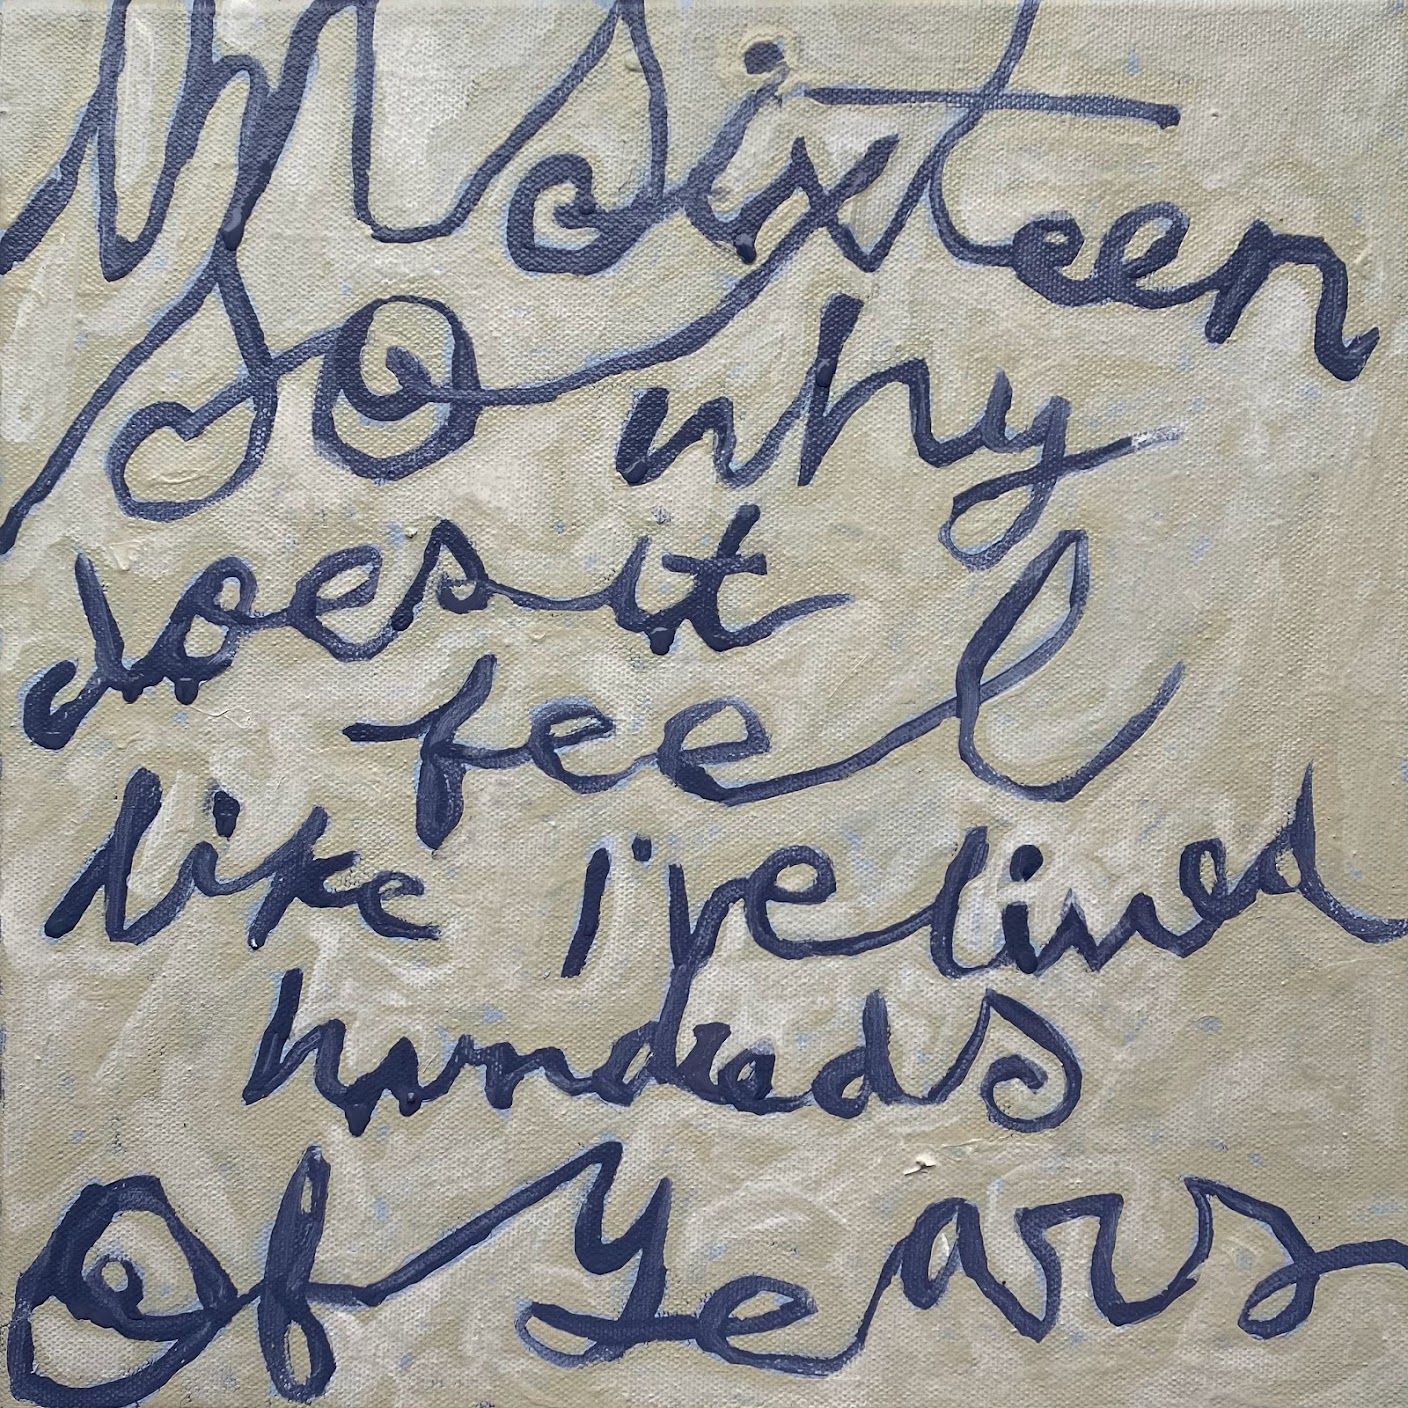 I'm sixteen
So why
does it
feel
like I've lived
hundreds
Of Years